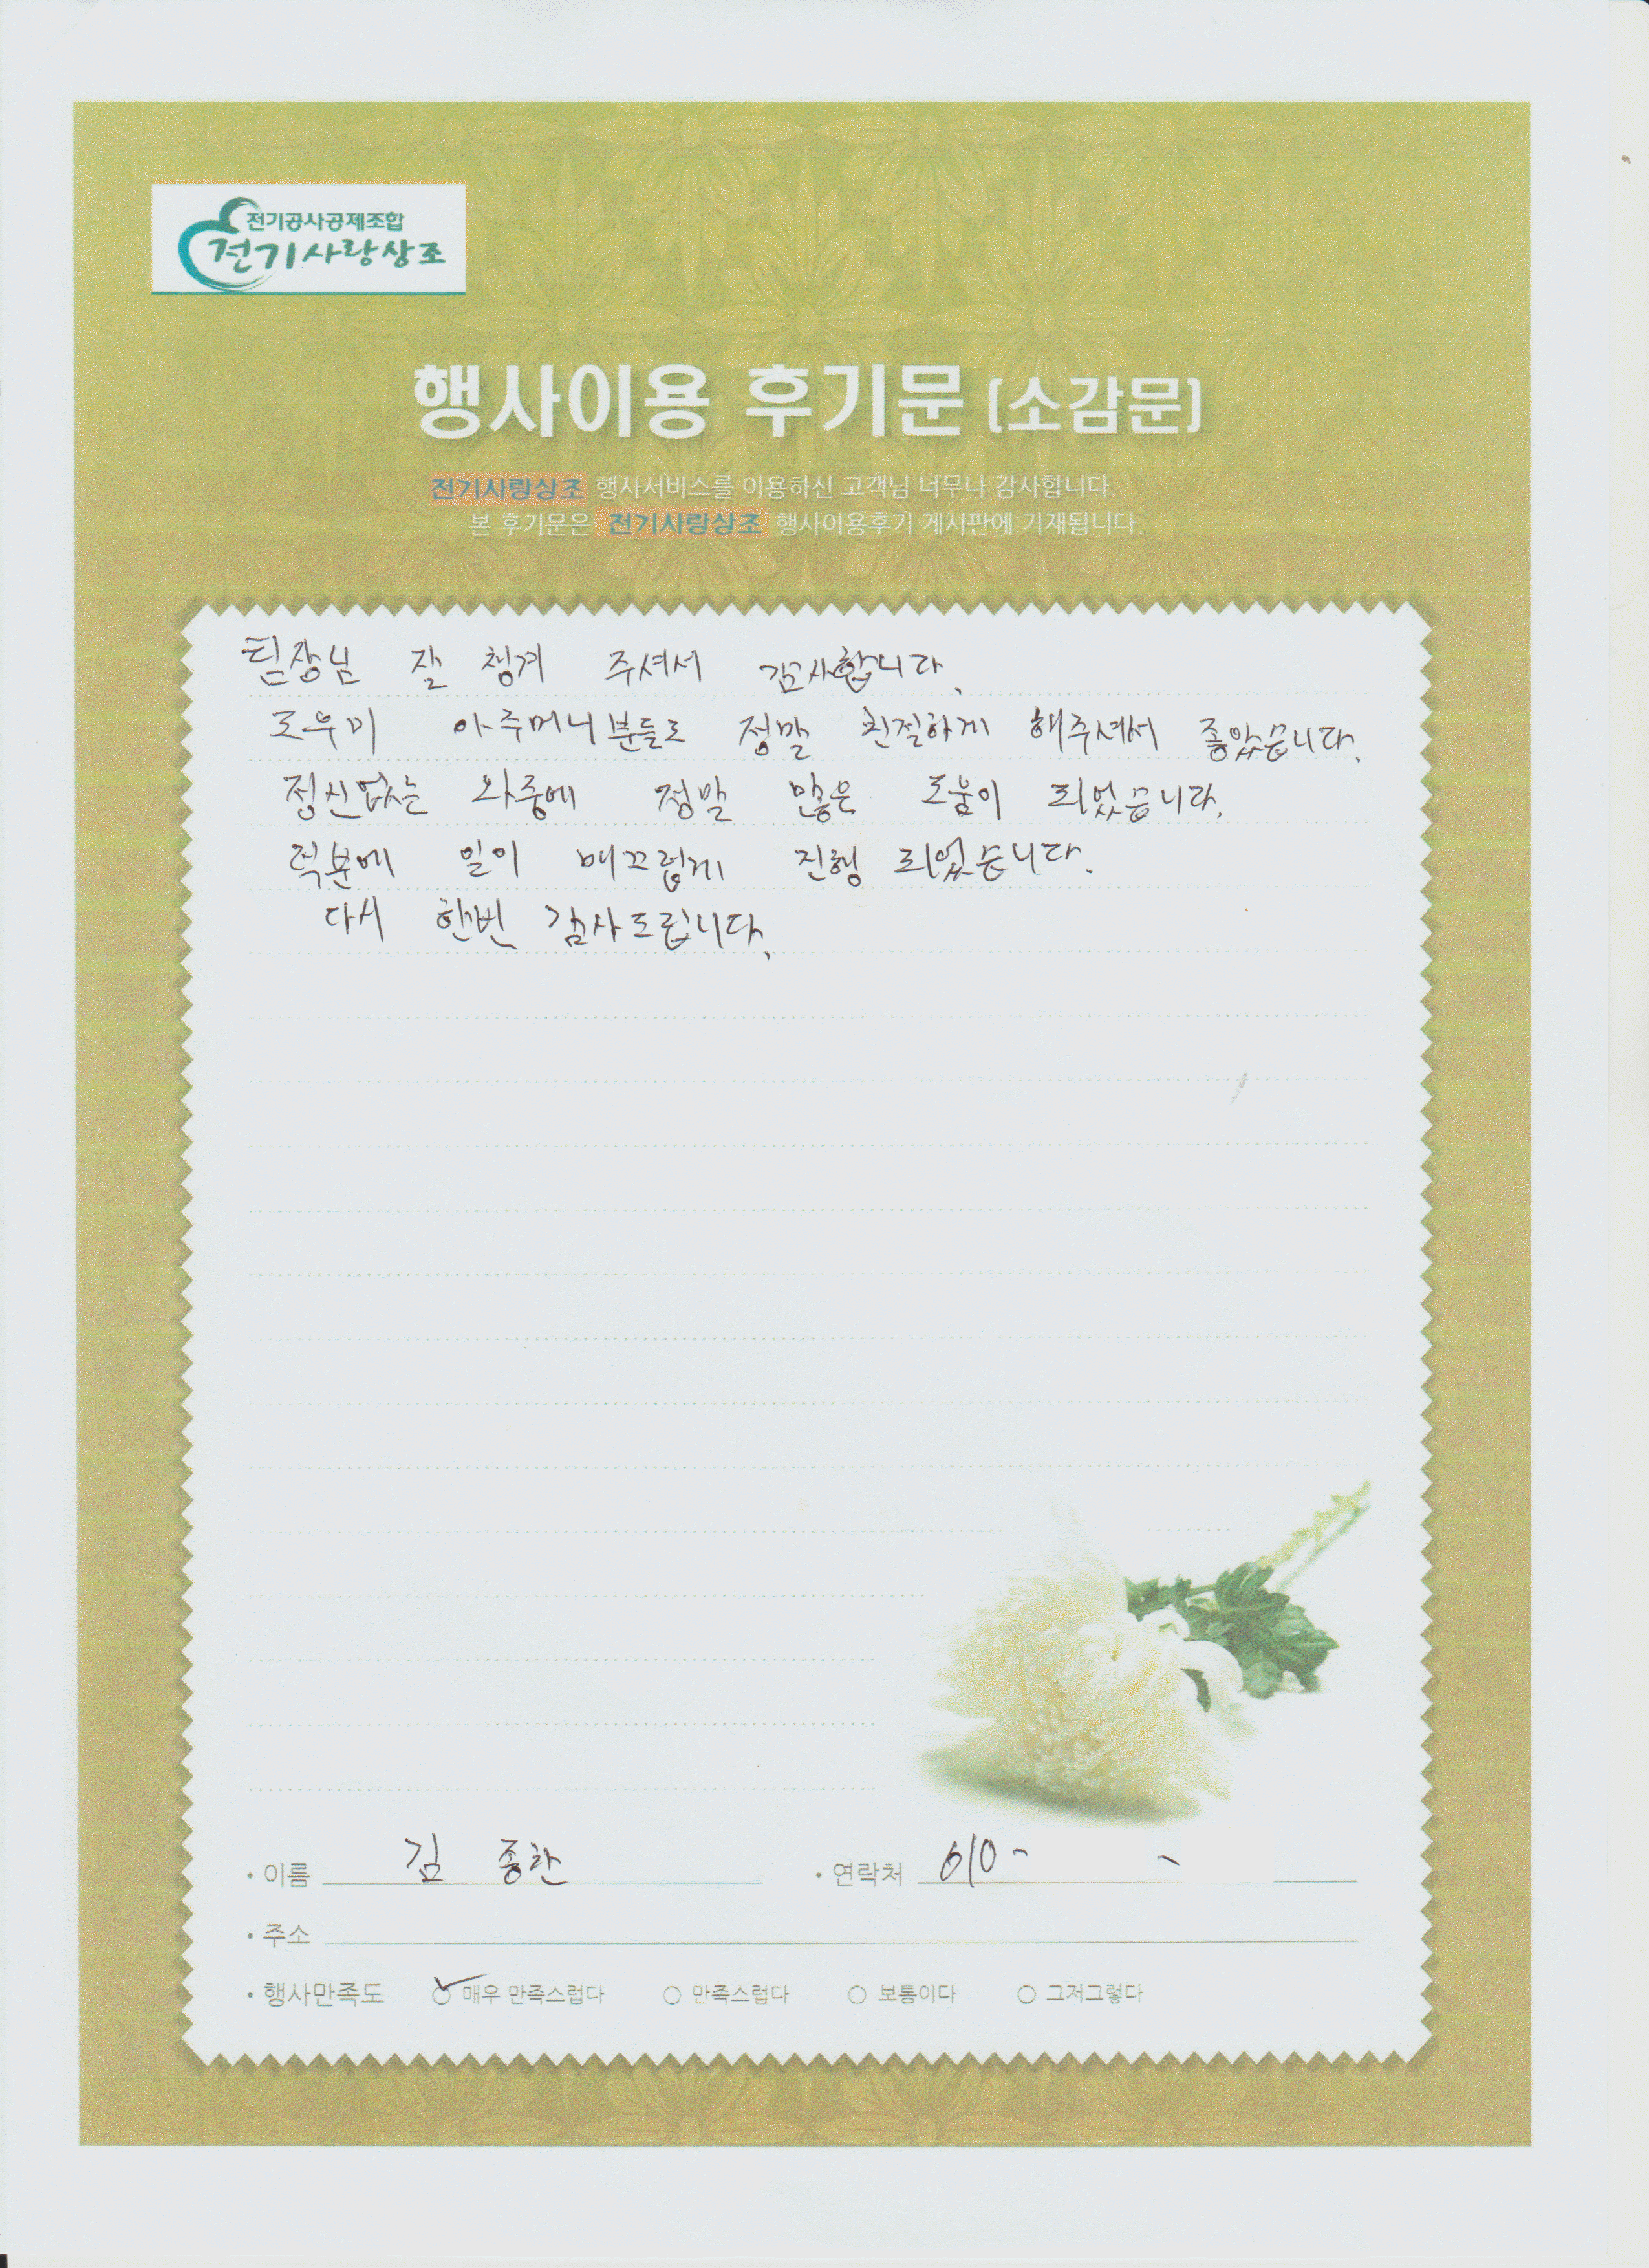 전기공사공제조합
전기사랑상조
행사이용 후기문 (소감문)
전기사랑상조 행사서비스를 이용하신 고객님 너무나 감사합니다.
본 후기문은 전기사랑상조 행사이용후기 게시판에 기재됩니다.
팀장님 잘 청겨 주셔서 감사합니다.
도우미 아주머니분들도 정말 친절하게 해주셔서 좋았습니다.
정신없는 와중에 정말 많은 도움이 되었습니다.
덕분에 일이 매끄럽게 진행 되었습니다.
다시 한번 감사드립니다.
• 이름 김 종한 • 연락처 010- -
• 주소
• 행사만족도 매우 만족스럽다 만족스럽다 보통이다 그저그렇다